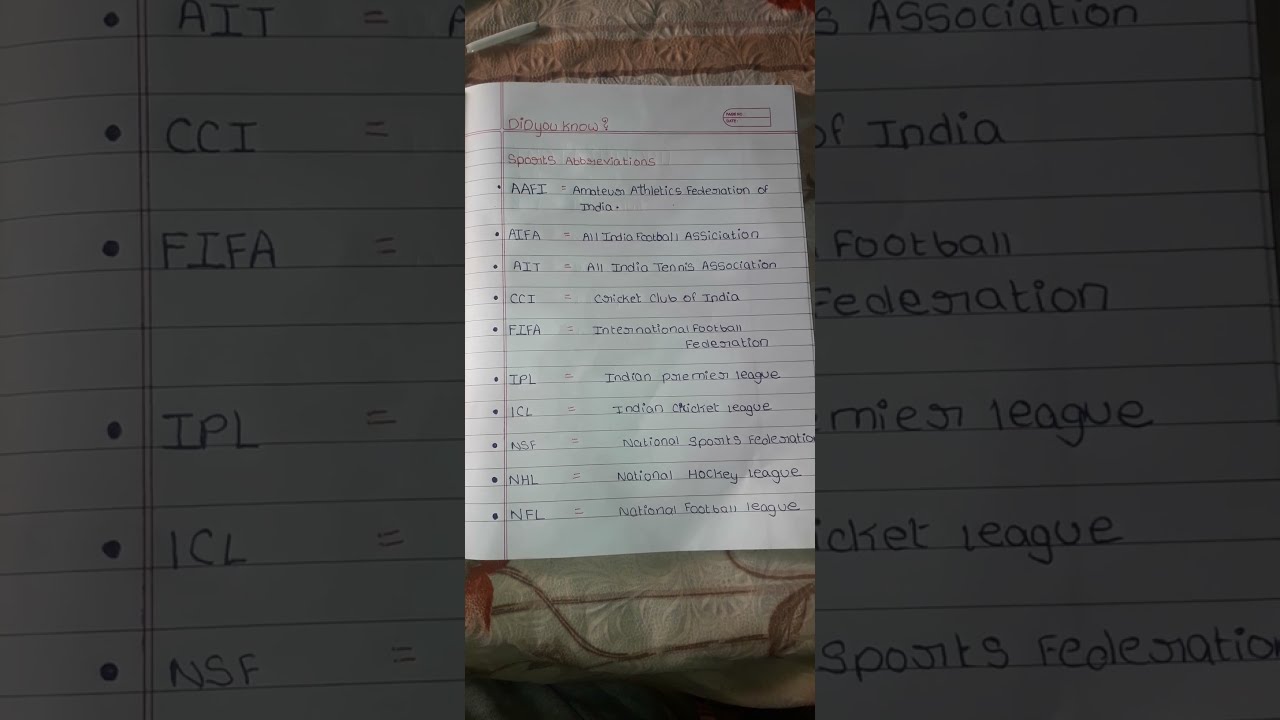 DiD you know?
Sports Abbreviations
• AAFI = Amateur Athletics Federation of
India.
• AIFA = All India Football Assiciation
• AIT = All India Tennis Association
• CCI = Cricket Club of India
• FIFA = International Football
Federation
• IPL = Indian premier league
• ICL = Indian Cricket league
• NSF = National Sports Federatio
• NHL = National Hockey league
• NFL = National Football league
• AIT = A
s Association
• CCI =
of India
• FIFA =
Football
Federation
• IPL =
mier league
• ICL =
icket league
• NSF =
Sports Federation